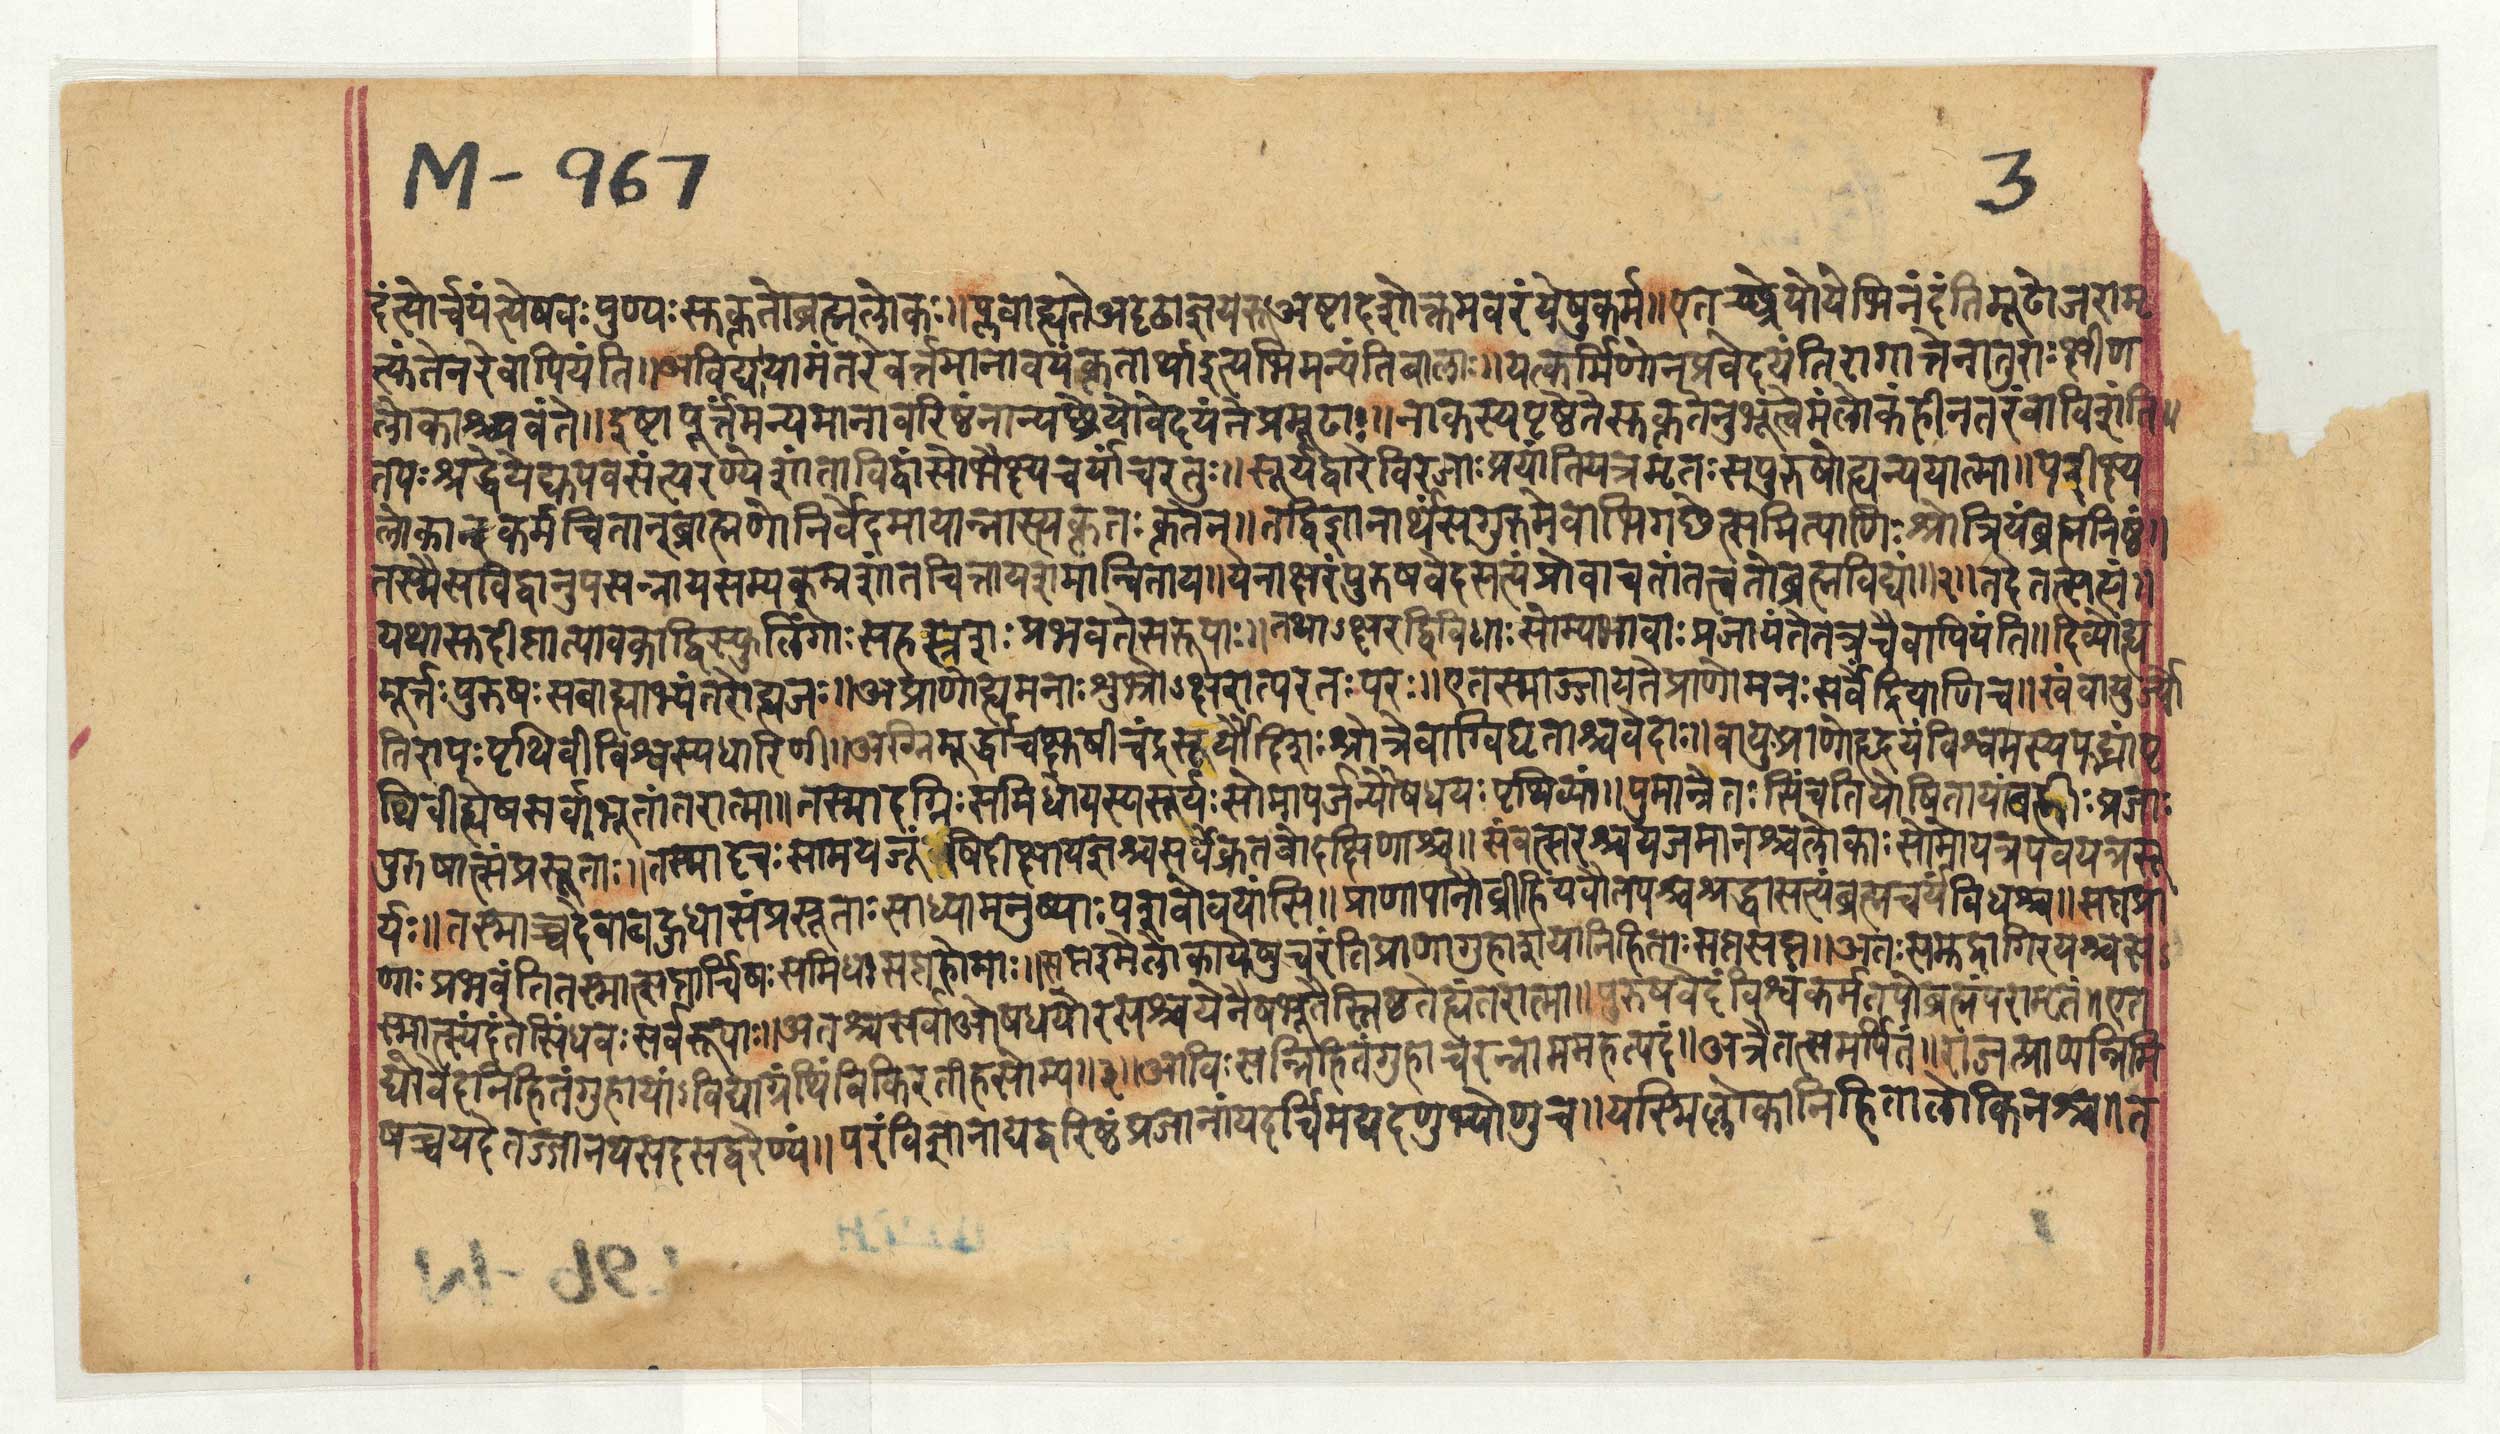 M - 967
3
दंत्योर्चयंत्येषवः पुण्यः सुकृतोब्रह्मलोकः ॥ प्लवाह्येतेअदृढायज्ञरूपाअष्टादशोक्तमवरंयेषुकर्म ॥ एतच्छ्रेयोयेभिनंदंतिमूढाजरामृ
त्युंतेनरेवापियंति ॥ अविद्यायामंतरेवर्त्तमानावयंकृतार्थाइत्यभिमन्यंतिबालाः ॥ यत्कर्मिणोनप्रवेदयंतिरागात्तेनातुराः क्षीण
लोकाश्च्यवंते ॥ इष्टापूर्त्तंमन्यमानावरिष्ठंनान्यच्छ्रेयोवेदयंतेप्रमूढाः ॥ नाकस्यपृष्ठेतेसुकृतेनुभूत्वेमंलोकंहीनतरंवाविशंति ॥
तपः श्रद्धेयेह्युपवसंत्यरण्येशांताविद्वांसोभैक्ष्यचर्यांचरंतः ॥ सूर्यद्वारेविरजाः प्रयांतियत्रमृतः सपुरुषोह्यव्ययात्मा ॥ परीक्ष्य
लोकान्कर्मचितान्ब्राह्मणोनिर्वेदमायान्नास्त्यकृतः कृतेन् ॥ तद्विज्ञानार्थंसगुरुमेवाभिगछेत्समित्पाणिः श्रोत्रियंब्रह्मनिष्ठं ॥
तस्मैसविद्वानुपसन्नायसम्यक्प्रशांतचित्तायशमान्विताय ॥ येनाक्षरंपुरुषंवेदसत्यंप्रोवाचतांतत्त्वतोब्रह्मविद्यां ॥ २ ॥ तदेतत्सत्यं ॥
यथासुदीप्तात्पावकाद्विस्फुलिंगाः सहस्रशः प्रभवंतेसरूपाः ॥ तथाऽक्षरद्विविधाः सोम्यभावाः प्रजायंतेतत्रचैवापियंति ॥ दिव्योह्य
मूर्त्तः पुरुषः सबाह्याभ्यंतरोह्यजः ॥ अप्राणोह्यमनाः शुभ्रोऽक्षरात्परतः परः ॥ एतस्माज्जायतेप्राणोमनः सर्वेंद्रियाणिच ॥ खंवायुर्ज्यो
तिरापः पृथिवीविश्वस्यधारिणी ॥ अग्निमूर्द्धाचक्षुषीचंद्रसूर्यौदिशः श्रोत्रेवाग्विवृताश्चवेदाः ॥ वायुप्राणोहृदयंविश्वमस्यपद्भ्यांपृ
थिवीह्येषसर्वाभूतांतरात्मा ॥ तस्मादग्निः समिधोयस्यसूर्यः सोमापर्जन्यौषधयः पृथिव्यां ॥ पुमान्रेतः सिंचतियोषितायांबह्वीः प्रजाः
पुरुषात्संप्रसूताः ॥ तस्मादृचः सामयजूंषिदीक्षायज्ञाश्चसर्वेक्रतवोदक्षिणाश्च ॥ संवत्सरश्चयजमानश्चलोकाः सोमोयत्रपवतेयत्रसू
र्यः ॥ तस्माच्चदेवाबहुधासंप्रसूताः साध्यामनुष्याः पशवोवयांसि ॥ प्राणापानौव्रीहियवौतपश्चश्रद्धासत्यंब्रह्मचर्यंविधिश्च ॥ सप्तप्रा
णाः प्रभवंतितस्मात्सप्तार्चिषः समिधः सप्तहोमाः ॥ सप्तइमेलोकायेषुचरंतिप्राणागुहाशयानिहिताः सप्तसप्त ॥ अतः समुद्रागिरयश्चसर्वे
स्मात्स्यंदंतेसिंधवः सर्वरूपाः ॥ अतश्चसर्वाओषधयोरसश्चयेनैषभूतैस्तिष्ठतेह्यंतरात्मा ॥ पुरुषएवेदंविश्वंकर्मतपोब्रह्मपरामृतं ॥ एत
द्योवेदनिहितंगुहायांऽविद्याग्रंथिंविकिरतीहसोम्य ॥ ३ ॥ आविः सन्निहितंगुहाचरन्नाममहत्पदं ॥ अत्रैतत्समर्पितं ॥ राजत्प्राणन्निमि
षच्चयदेतज्जानथसदसद्वरेण्यं ॥ परंविज्ञानाद्यद्वरिष्ठंप्रजानांयदर्चिमद्यदणुभ्योणुच ॥ यस्मिंल्लोकानिहितालोकिनश्च ॥ त